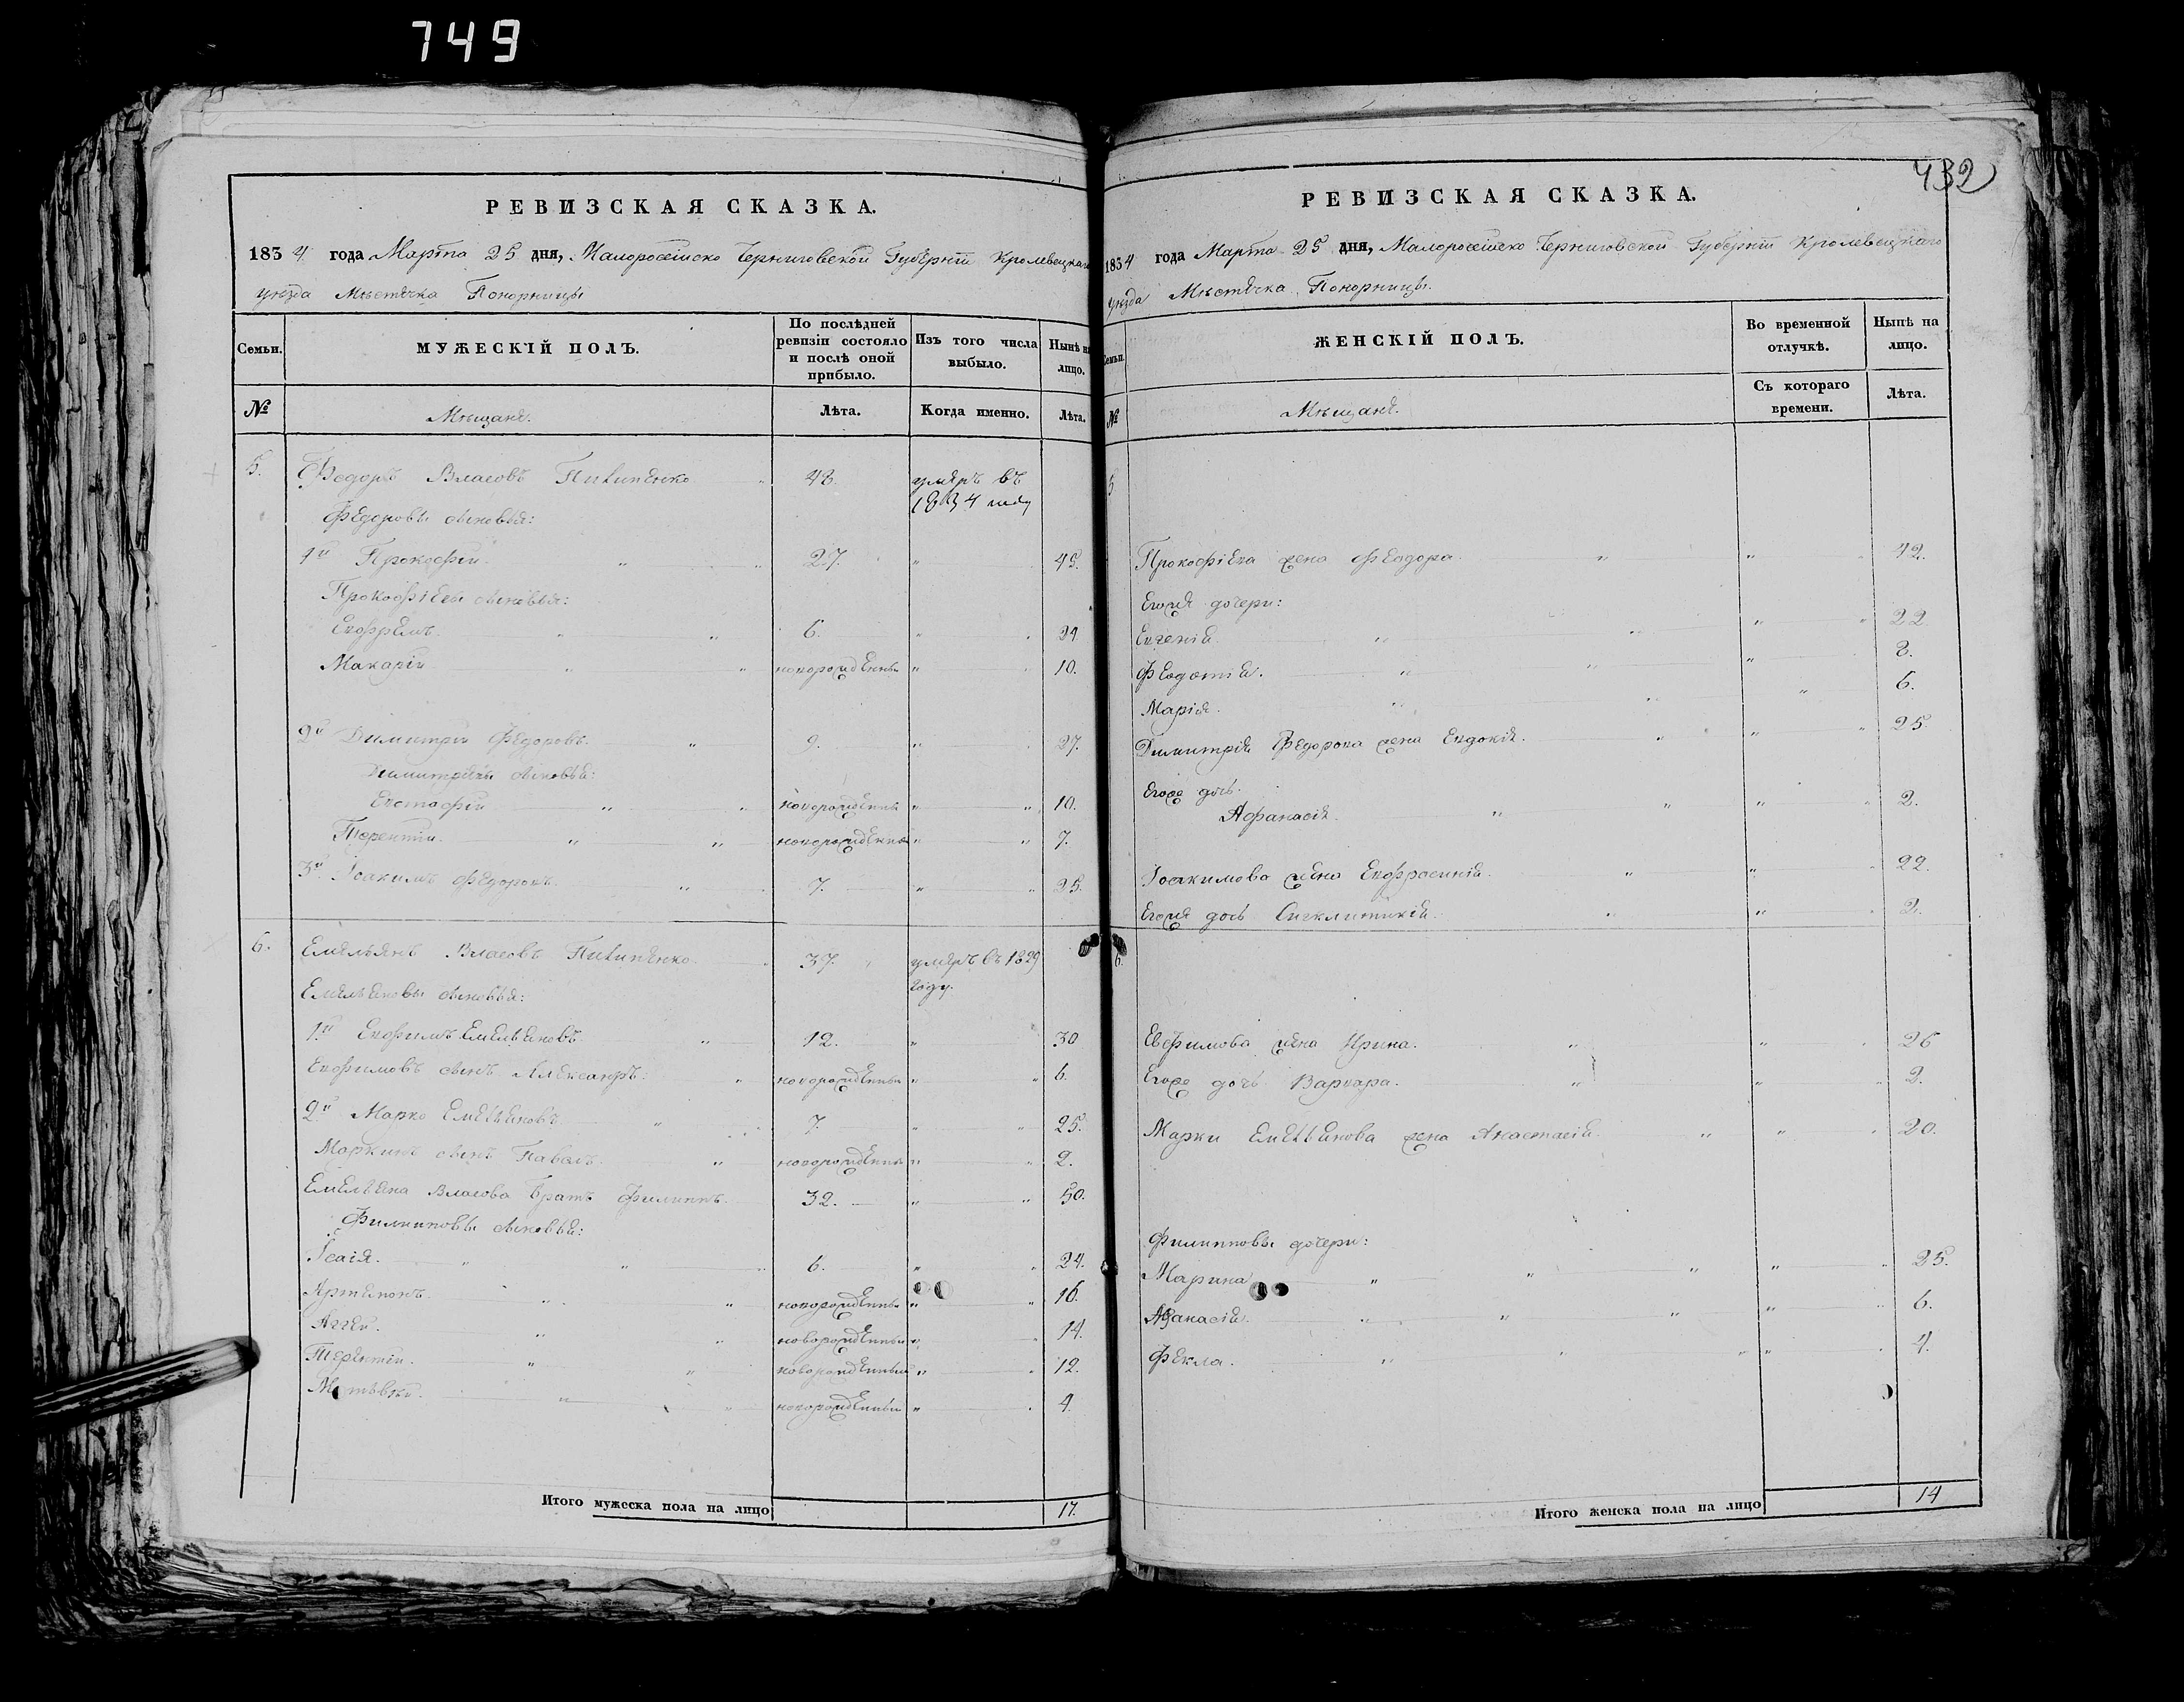 749
РЕВИЗСКАЯ СКАЗКА.
1834 года Марта 25 дня, Малоросейско Черниговской Губерніи Кролевецкаго
уѣзда Мѣстечка Понорницы
Семьи. МУЖЕСКІЙ ПОЛЪ. По послѣдней ревизіи состояло и послѣ оной прибыло. Изъ того числа выбыло. Нынѣ на лицо.
№ Мѣщане. Лѣта. Когда именно. Лѣта.
5. Федоръ Власовъ 48. умеръ въ
1834 году
Федоровы сыновья:
1й Прокофій 27. 45.
Прокофіевы сыновья:
Евфремъ 6. 24.
Макарій новорожденный 10.
2й Димитрій Федоровъ 9. 27.
Димитріевы сыновья:
Евстафій новорожденный 10.
Терентій новорожденный 7.
3й Іоакимъ Федоровъ 7. 25.
6. Емельянъ Власовъ 37. умеръ въ 1829
году.
Емельяновы сыновья:
1й Евфимъ Емельяновъ 12. 30
Евфимовъ сынъ Александръ: новорожденный 6.
2й Марко Емельяновъ 7. 25.
Маркинъ сынъ Павелъ новорожденный 2.
Емельяна Власова братъ Филиппъ 32. 50.
Филиповы сыновья:
Ісаія. 6. 24.
Артемонъ новорожденный 16.
Аггей. новорожденный 14.
Терентій. новорожденный 12.
новорожденный 4.
Итого мужеска пола на лицо 17.
432
РЕВИЗСКАЯ СКАЗКА.
1834 года Марта 25 дня, Малоросейско Черниговской Губерніи Кролевецкаго
уѣзда Мѣстечка Понорницы.
Семьи. ЖЕНСКІЙ ПОЛЪ. Во временной отлучкѣ. Нынѣ на лицо.
№ Мѣщане. Съ котораго времени. Лѣта.
5
Прокофіева жена Феодора 42.
Егоже дочери:
Евгенія 22
Феодотія. 8.
Марія. 6.
Димитрія Федорова жена Евдокія. 25.
Егоже дочь.
Афанасія. 2.
Іоакимова жена Евфросинія. 22.
Егоже дочь Синклитикія. 2.
6.
Евфимова жена Ирина. 26
Егоже дочь Варвара. 2.
Марки Емельянова жена Анастасія. 20.
Филипповы дочери:
Марина 25.
Афанасія. 6.
Фекла. 4.
Итого женска пола на лицо 14